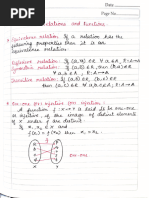 Date
Page No.
Relations and Functions
Equivalence relation: If a relation has the
following properties then it is an
equivalence relation:
Reflexive relation: if (a,a) ∈ R ∀ a ∈ A; R: A→A
Symmetric relation: if (a,b) ∈ R, then (b,a) ∈ R
∀ a,b ∈ A, R: A→A
Transitive relation: if (a,b) ∈ R, (b,c) ∈ R
then (a,c) ∈ R ∀ a,b,c ∈ A; R: A→A
One-one
A function f: X→Y is said to be one-one
or injective, if the image of distinct
elements of X under f are distinct
If x₁, x₂ ∈ X and
f(x₁) = f(x₂)
x₁ = x₂
one-one